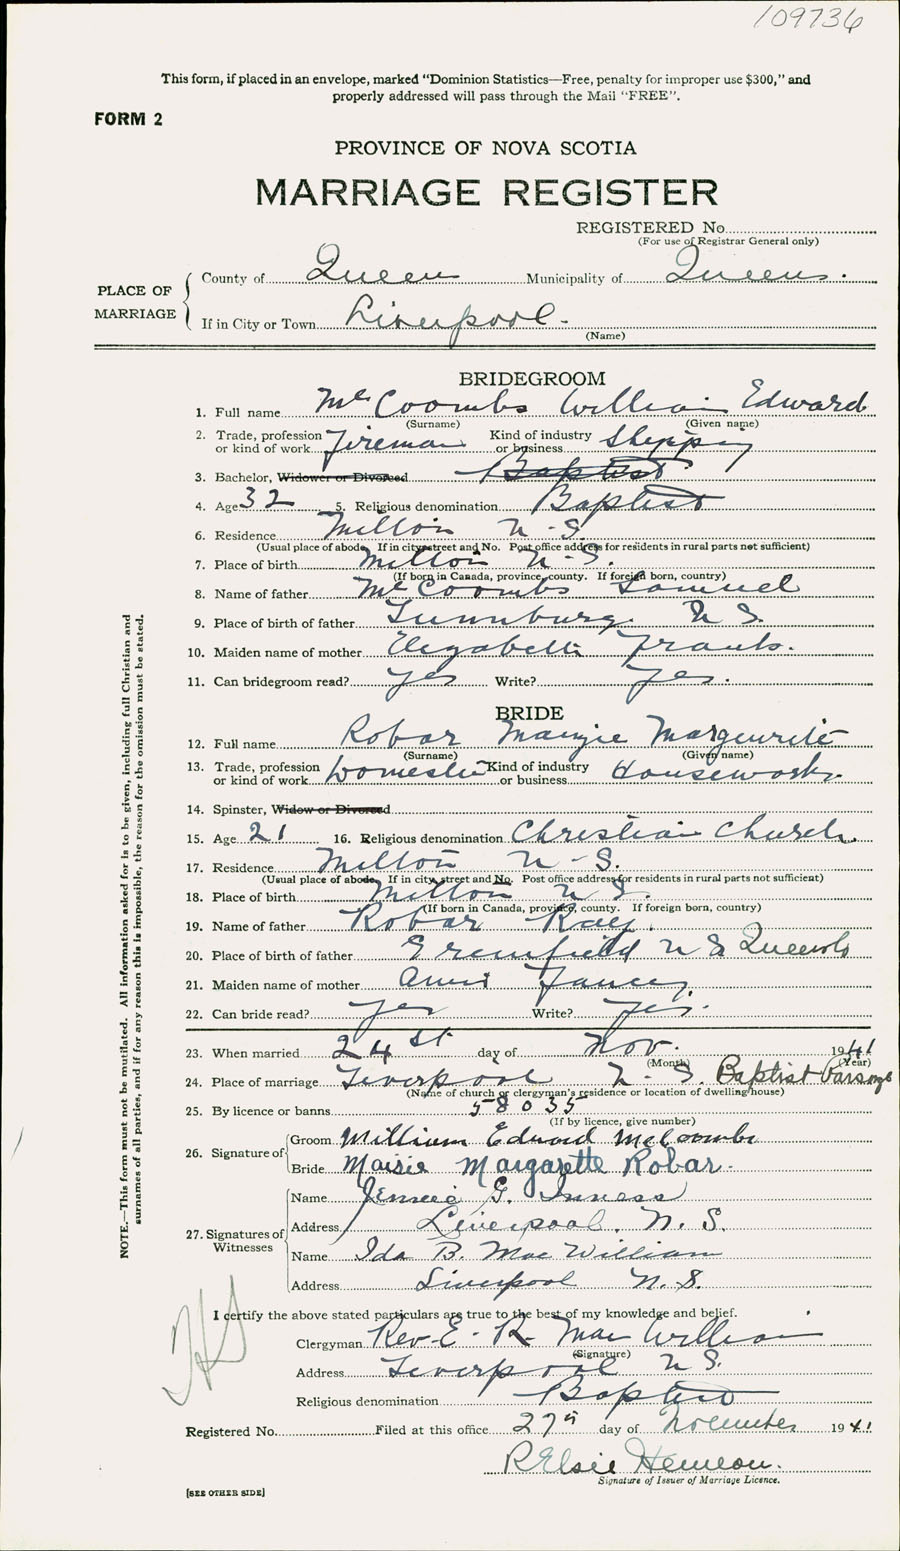 109736
This form, if placed in an envelope, marked “Dominion Statistics—Free, penalty for improper use $300,” and
properly addressed will pass through the Mail “FREE”.
FORM 2
PROVINCE OF NOVA SCOTIA
MARRIAGE REGISTER
REGISTERED No
(For use of Registrar General only)
PLACE OF MARRIAGE
County of Queens Municipality of Queens.
If in City or Town Liverpool.
(Name)
BRIDEGROOM
1. Full name McCoombs William Edward
(Surname) (Given name)
2. Trade, profession or kind of work Fireman Kind of industry or business Shipping
3. Bachelor, Widower or Divorced Baptist
4. Age 32 5. Religious denomination Baptist
6. Residence Milton N.S.
(Usual place of abode. If in city street and No. Post office address for residents in rural parts not sufficient)
7. Place of birth Milton N.S.
(If born in Canada, province, county. If foreign born, country)
8. Name of father McCoombs Samuel
9. Place of birth of father Lunnburg N.S.
10. Maiden name of mother Elizabeth Franks.
11. Can bridegroom read? yes Write? yes.
BRIDE
12. Full name Robar Marguerite
(Surname) (Given name)
13. Trade, profession or kind of work Domestic Kind of industry or business Housework.
14. Spinster, Widow or Divorced
15. Age 21 16. Religious denomination Christian Church.
17. Residence Milton N-S.
(Usual place of abode. If in city, street and No. Post office address for residents in rural parts not sufficient)
18. Place of birth Milton N.S.
(If born in Canada, province, county. If foreign born, country)
19. Name of father Robar Ray.
20. Place of birth of father Greenfield N S Queens Co
21. Maiden name of mother Annie Fancy.
22. Can bride read? yes Write? yes.
23. When married 24st day of Nov. 1941
(Month) (Year)
24. Place of marriage Liverpool N.S. Baptist Parsonage
(Name of church or clergyman’s residence or location of dwelling house)
25. By licence or banns 58035
(If by licence, give number)
26. Signature of
Groom William Edward McCoombs
Bride Maisie Margarette Robar.
27. Signatures of Witnesses
Name Jennie G. Inness
Address Liverpool, N.S.
Name Ida B. MacWilliam
Address Liverpool N.S.
I certify the above stated particulars are true to the best of my knowledge and belief.
Clergyman Rev. E. R. MacWilliam
(Signature)
Address Liverpool N.S.
Religious denomination Baptist
Registered No. Filed at this office 27th day of November 1941
R Elsie Hemeon.
Signature of Issuer of Marriage Licence.
[SEE OTHER SIDE]
NOTE.—This form must not be mutilated. All information asked for is to be given, including full Christian and
surnames of all parties, and if for any reason this is impossible, the reason for the omission must be stated.